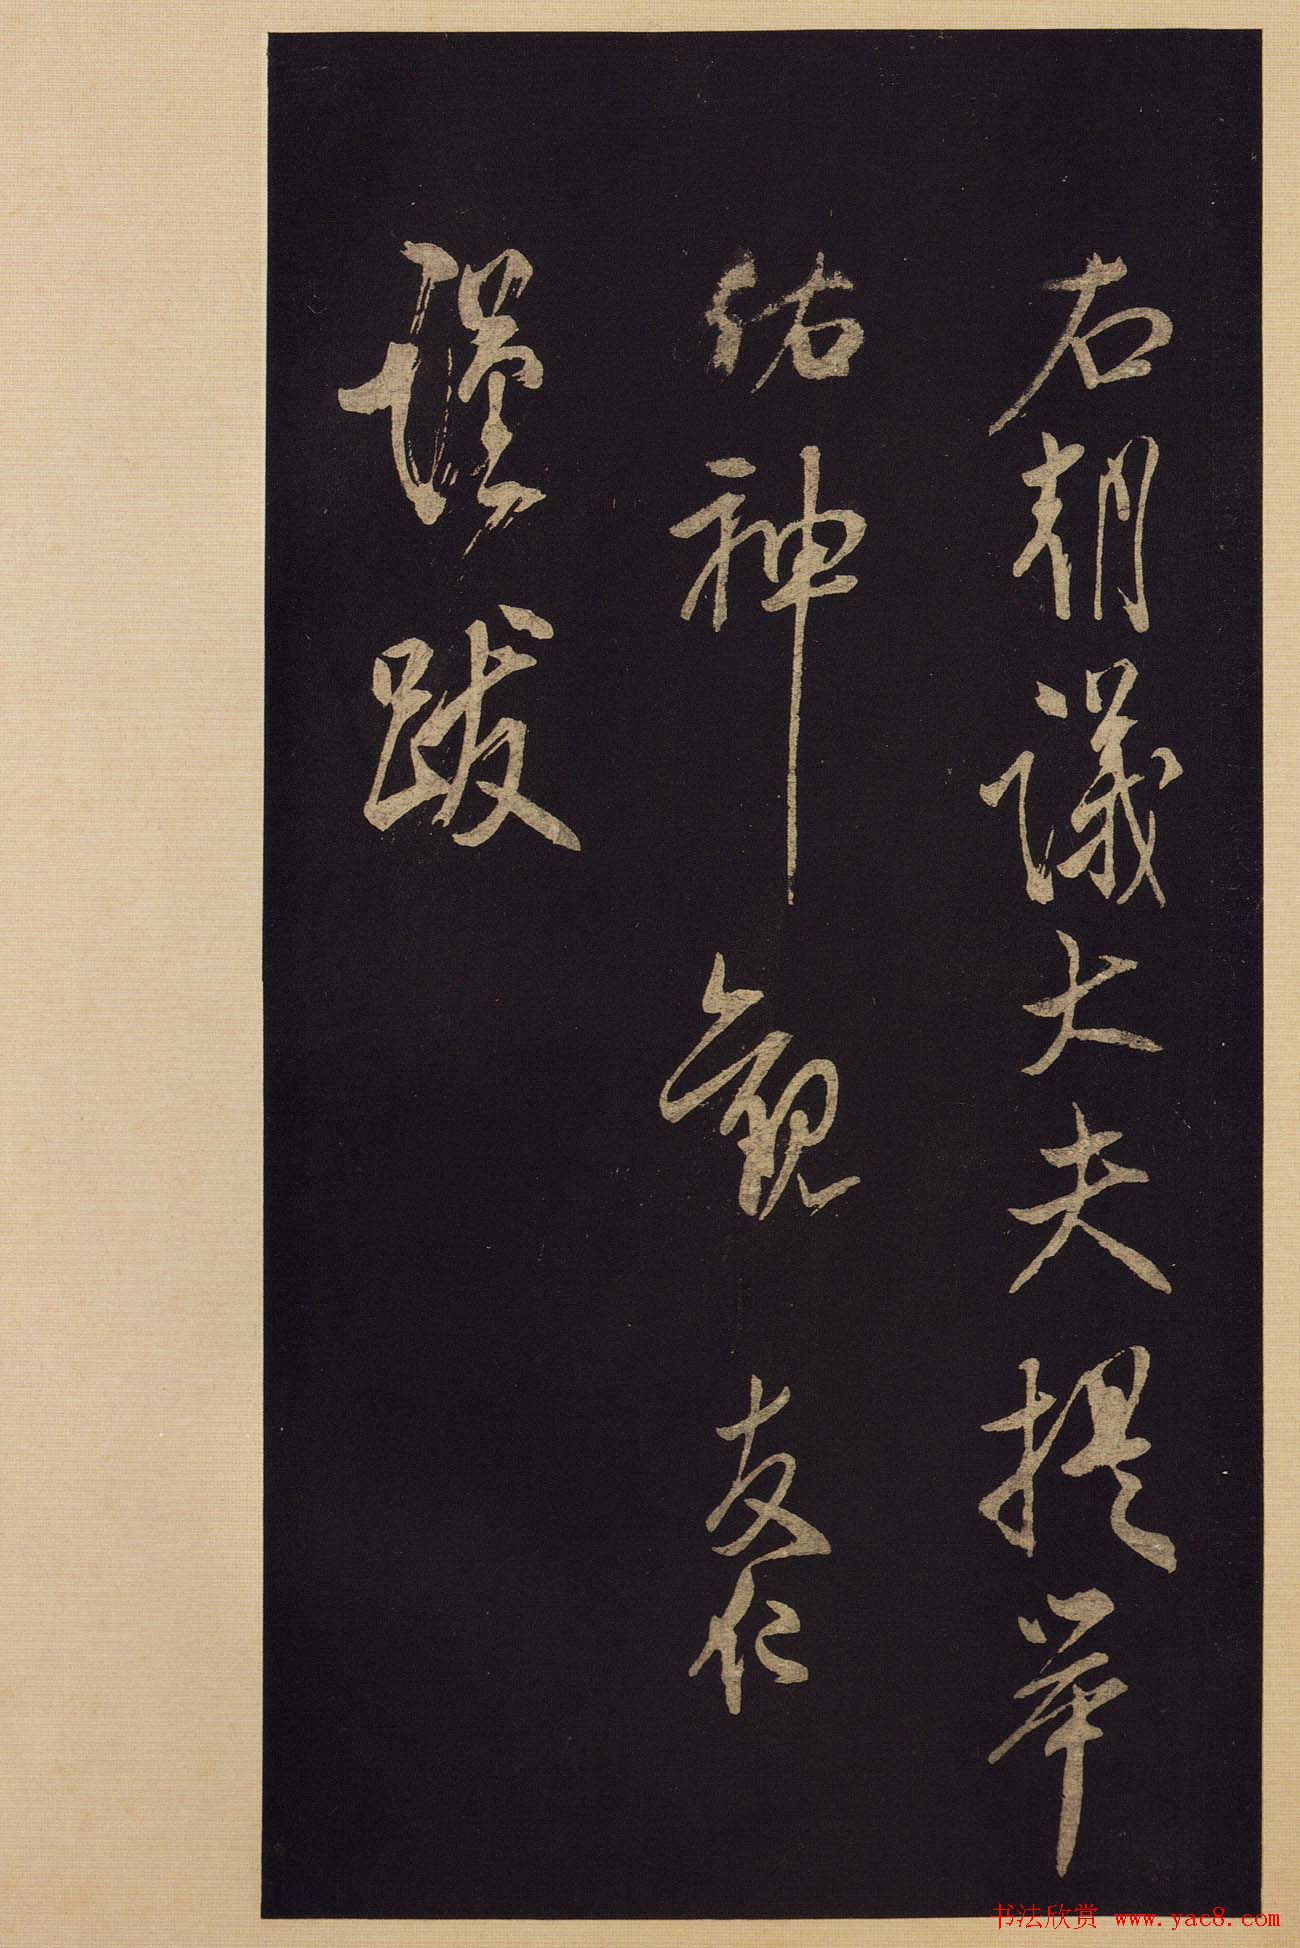 右朝議大夫提舉
佑神觀友仁
謹跋
书法欣赏 www.yac8.com